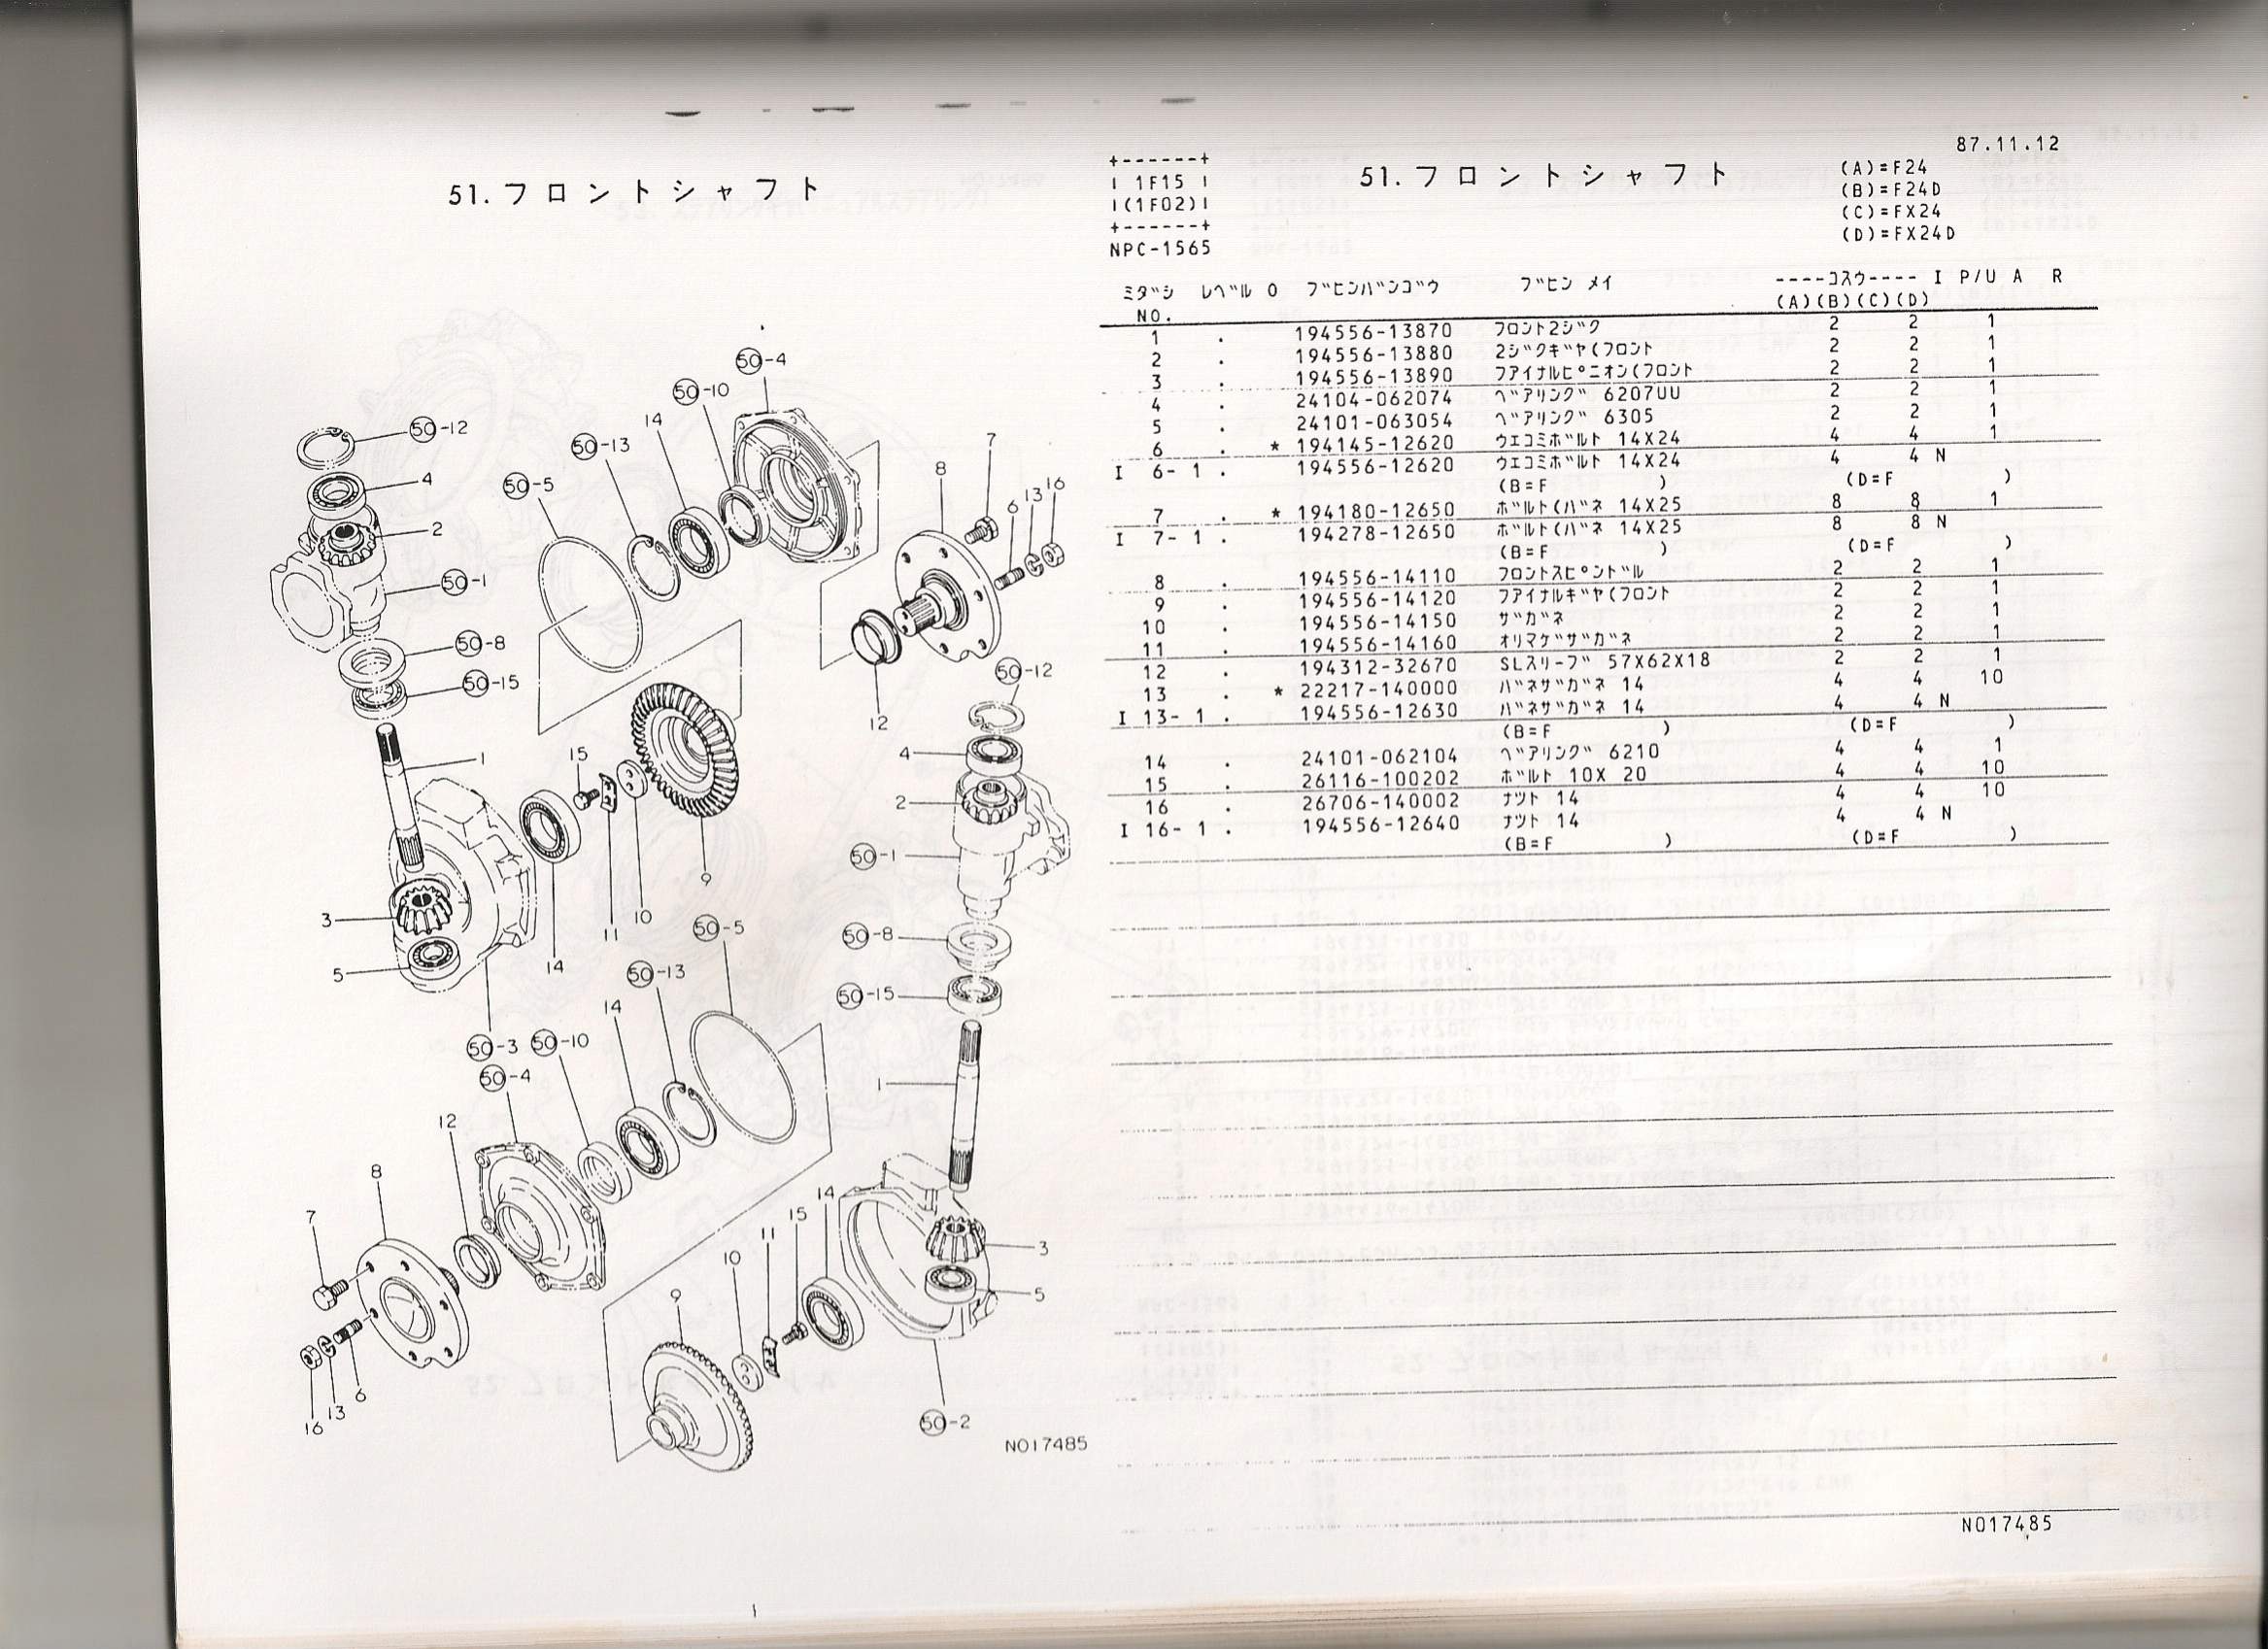 51.フロントシャフト
50-4
50-10
50-12
14
7
50-13
8
4
50-5
16
13
6
2
50-1
50-8
50-12
50-15
12
4
15
1
2
50-1
9
3
10
11
50-5
50-8
5
14
50-13
50-15
14
50-3
50-10
50-4
1
12
8
14
7
15
11
3
10
5
9
6
13
16
50-2
N017485
87.11.12
+------+
I 1F15 I
I(1F02)I
+------+
NPC-1565
51.フロントシャフト
(A)=F24
(B)=F24D
(C)=FX24
(D)=FX24D
ミダシ レベル O ブヒンバンゴウ ブヒン メイ ----コスウ---- I P/U A R
NO. (A)(B)(C)(D)
1 . 194556-13870 フロント2ジク 2 2 1
2 . 194556-13880 2ジクギヤ(フロント 2 2 1
3 . 194556-13890 フアイナルピニオン(フロント 2 2 1
4 . 24104-062074 ベアリング 6207UU 2 2 1
5 . 24101-063054 ベアリング 6305 2 2 1
6 . * 194145-12620 ウエコミボルト 14X24 4 4 1
I 6- 1 . 194556-12620 ウエコミボルト 14X24 4 4 N
(B=F ) (D=F )
7 . * 194180-12650 ボルト(バネ 14X25 8 8 1
I 7- 1 . 194278-12650 ボルト(バネ 14X25 8 8 N
(B=F ) (D=F )
8 . 194556-14110 フロントスピンドル 2 2 1
9 . 194556-14120 フアイナルギヤ(フロント 2 2 1
10 . 194556-14150 ザガネ 2 2 1
11 . 194556-14160 オリマゲザガネ 2 2 1
12 . 194312-32670 SLスリーブ 57X62X18 2 2 1
13 . * 22217-140000 バネザガネ 14 4 4 10
I 13- 1 . 194556-12630 バネザガネ 14 4 4 N
(B=F ) (D=F )
14 . 24101-062104 ベアリング 6210 4 4 1
15 . 26116-100202 ボルト 10X 20 4 4 10
16 . 26706-140002 ナツト 14 4 4 10
I 16- 1 . 194556-12640 ナツト 14 4 4 N
(B=F ) (D=F )
N017485